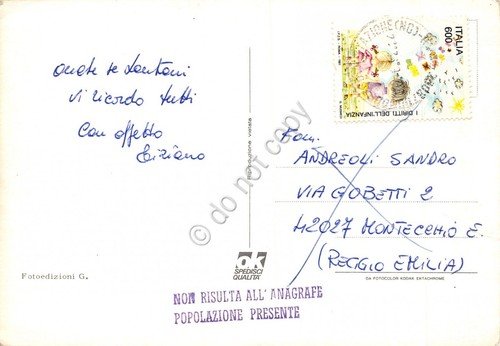 Anche se lontani
Vi ricordo tutti
Con affetto
Tiziano
Fotoedizioni G.
riproduzione vietata
ok
SPEDISCI
QUALITA'
ITALIA
600
I DIRITTI DELL'INFANZIA
Fam.
ANDREOLI SANDRO
VIA GOBETTI 2
42027 MONTECCHIO E.
(REGGIO EMILIA)
DA FOTOCOLOR KODAK EKTACHROME
NON RISULTA ALL'ANAGRAFE
POPOLAZIONE PRESENTE
do not copy